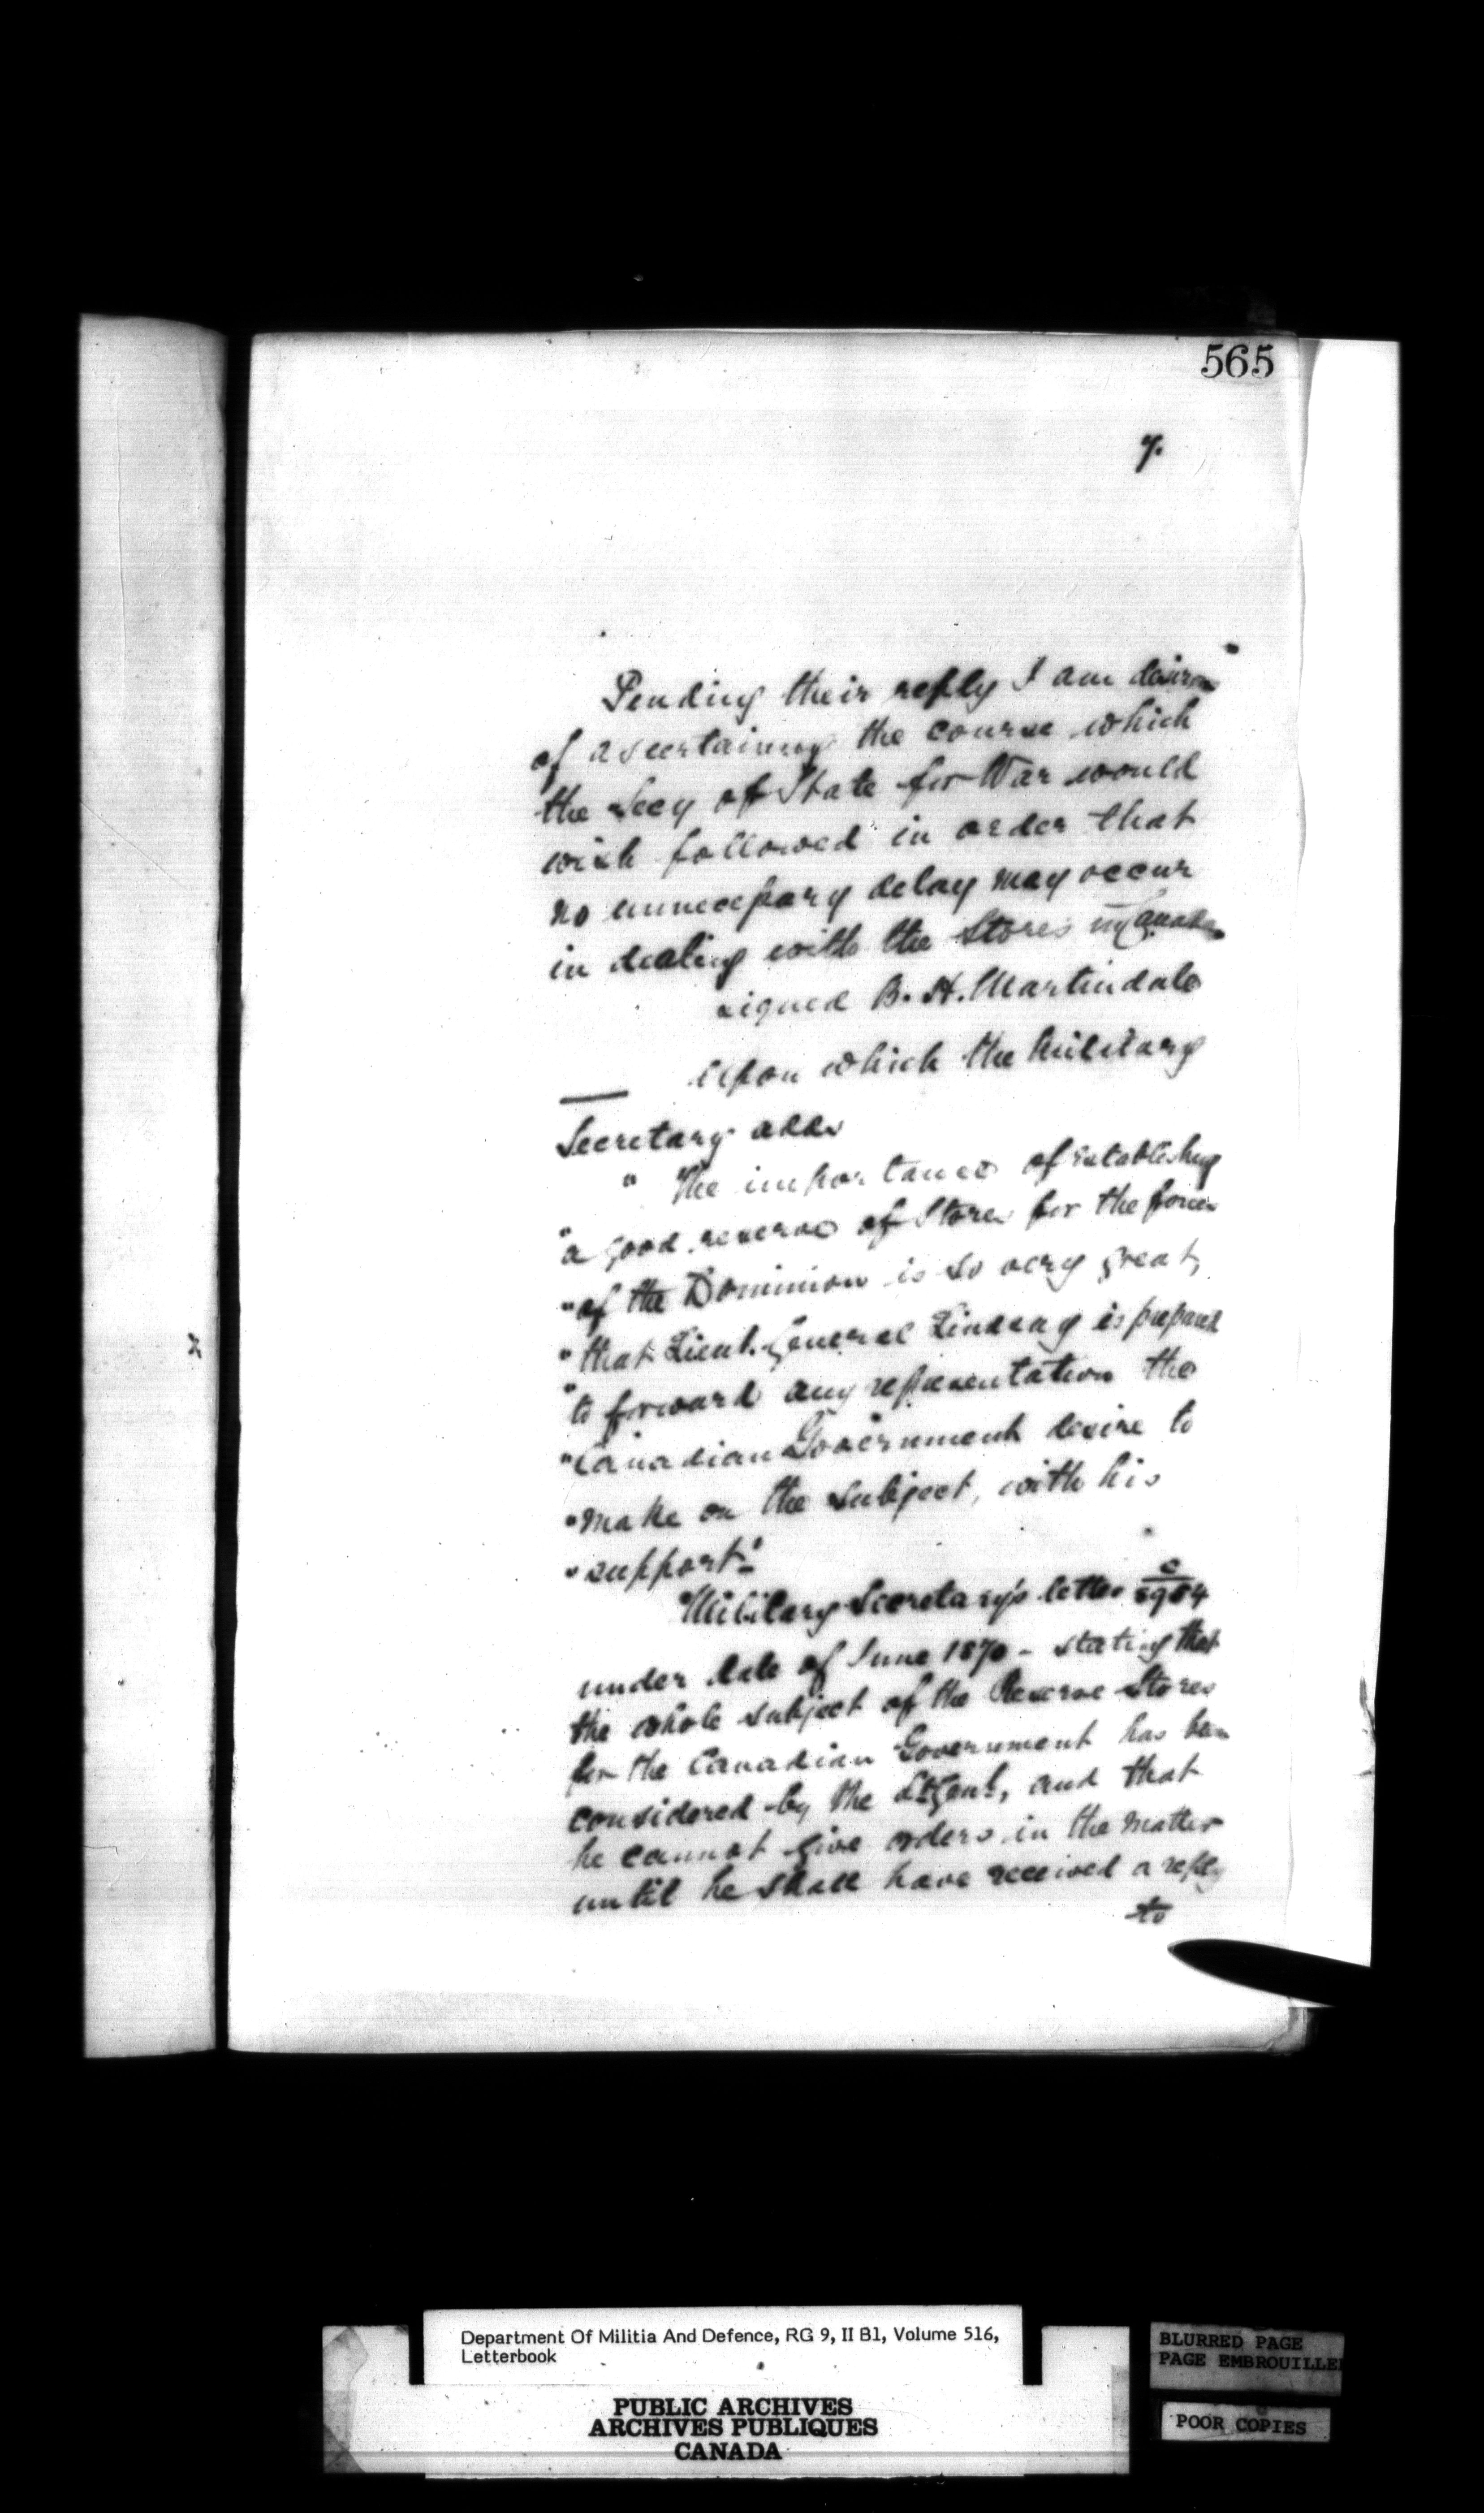 565
7.
Pending their reply I am desirous
of ascertaining the course which
the Secy of State for War would
wish followed in order that
no unnecessary delay may occur
in dealing with the Stores in Canada
signed B. H. Martindale
Upon which the Military
Secretary adds
" The importance of establishing
"a good reserve of Stores for the forces
"of the Dominion is so very great,
"that Lieut. General Lindsay is prepared
"to forward any representation the
"Canadian Government desire to
"make on the subject, with his
"support."
Military Secretary's letter C
under date of June 1870 - stating that
the whole subject of the Reserve Stores
for the Canadian Government has been
considered by the Lt Genl, and that
he cannot give orders in the matter
until he shall have received a reply
to
Department Of Militia And Defence, RG 9, II B1, Volume 516,
Letterbook
PUBLIC ARCHIVES
ARCHIVES PUBLIQUES
CANADA
BLURRED PAGE
PAGE EMBROUILLEE
POOR COPIES